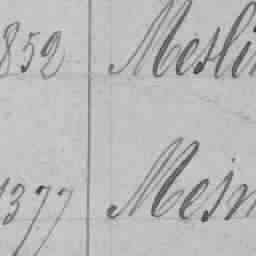 852 Mesli
1377 Mesn